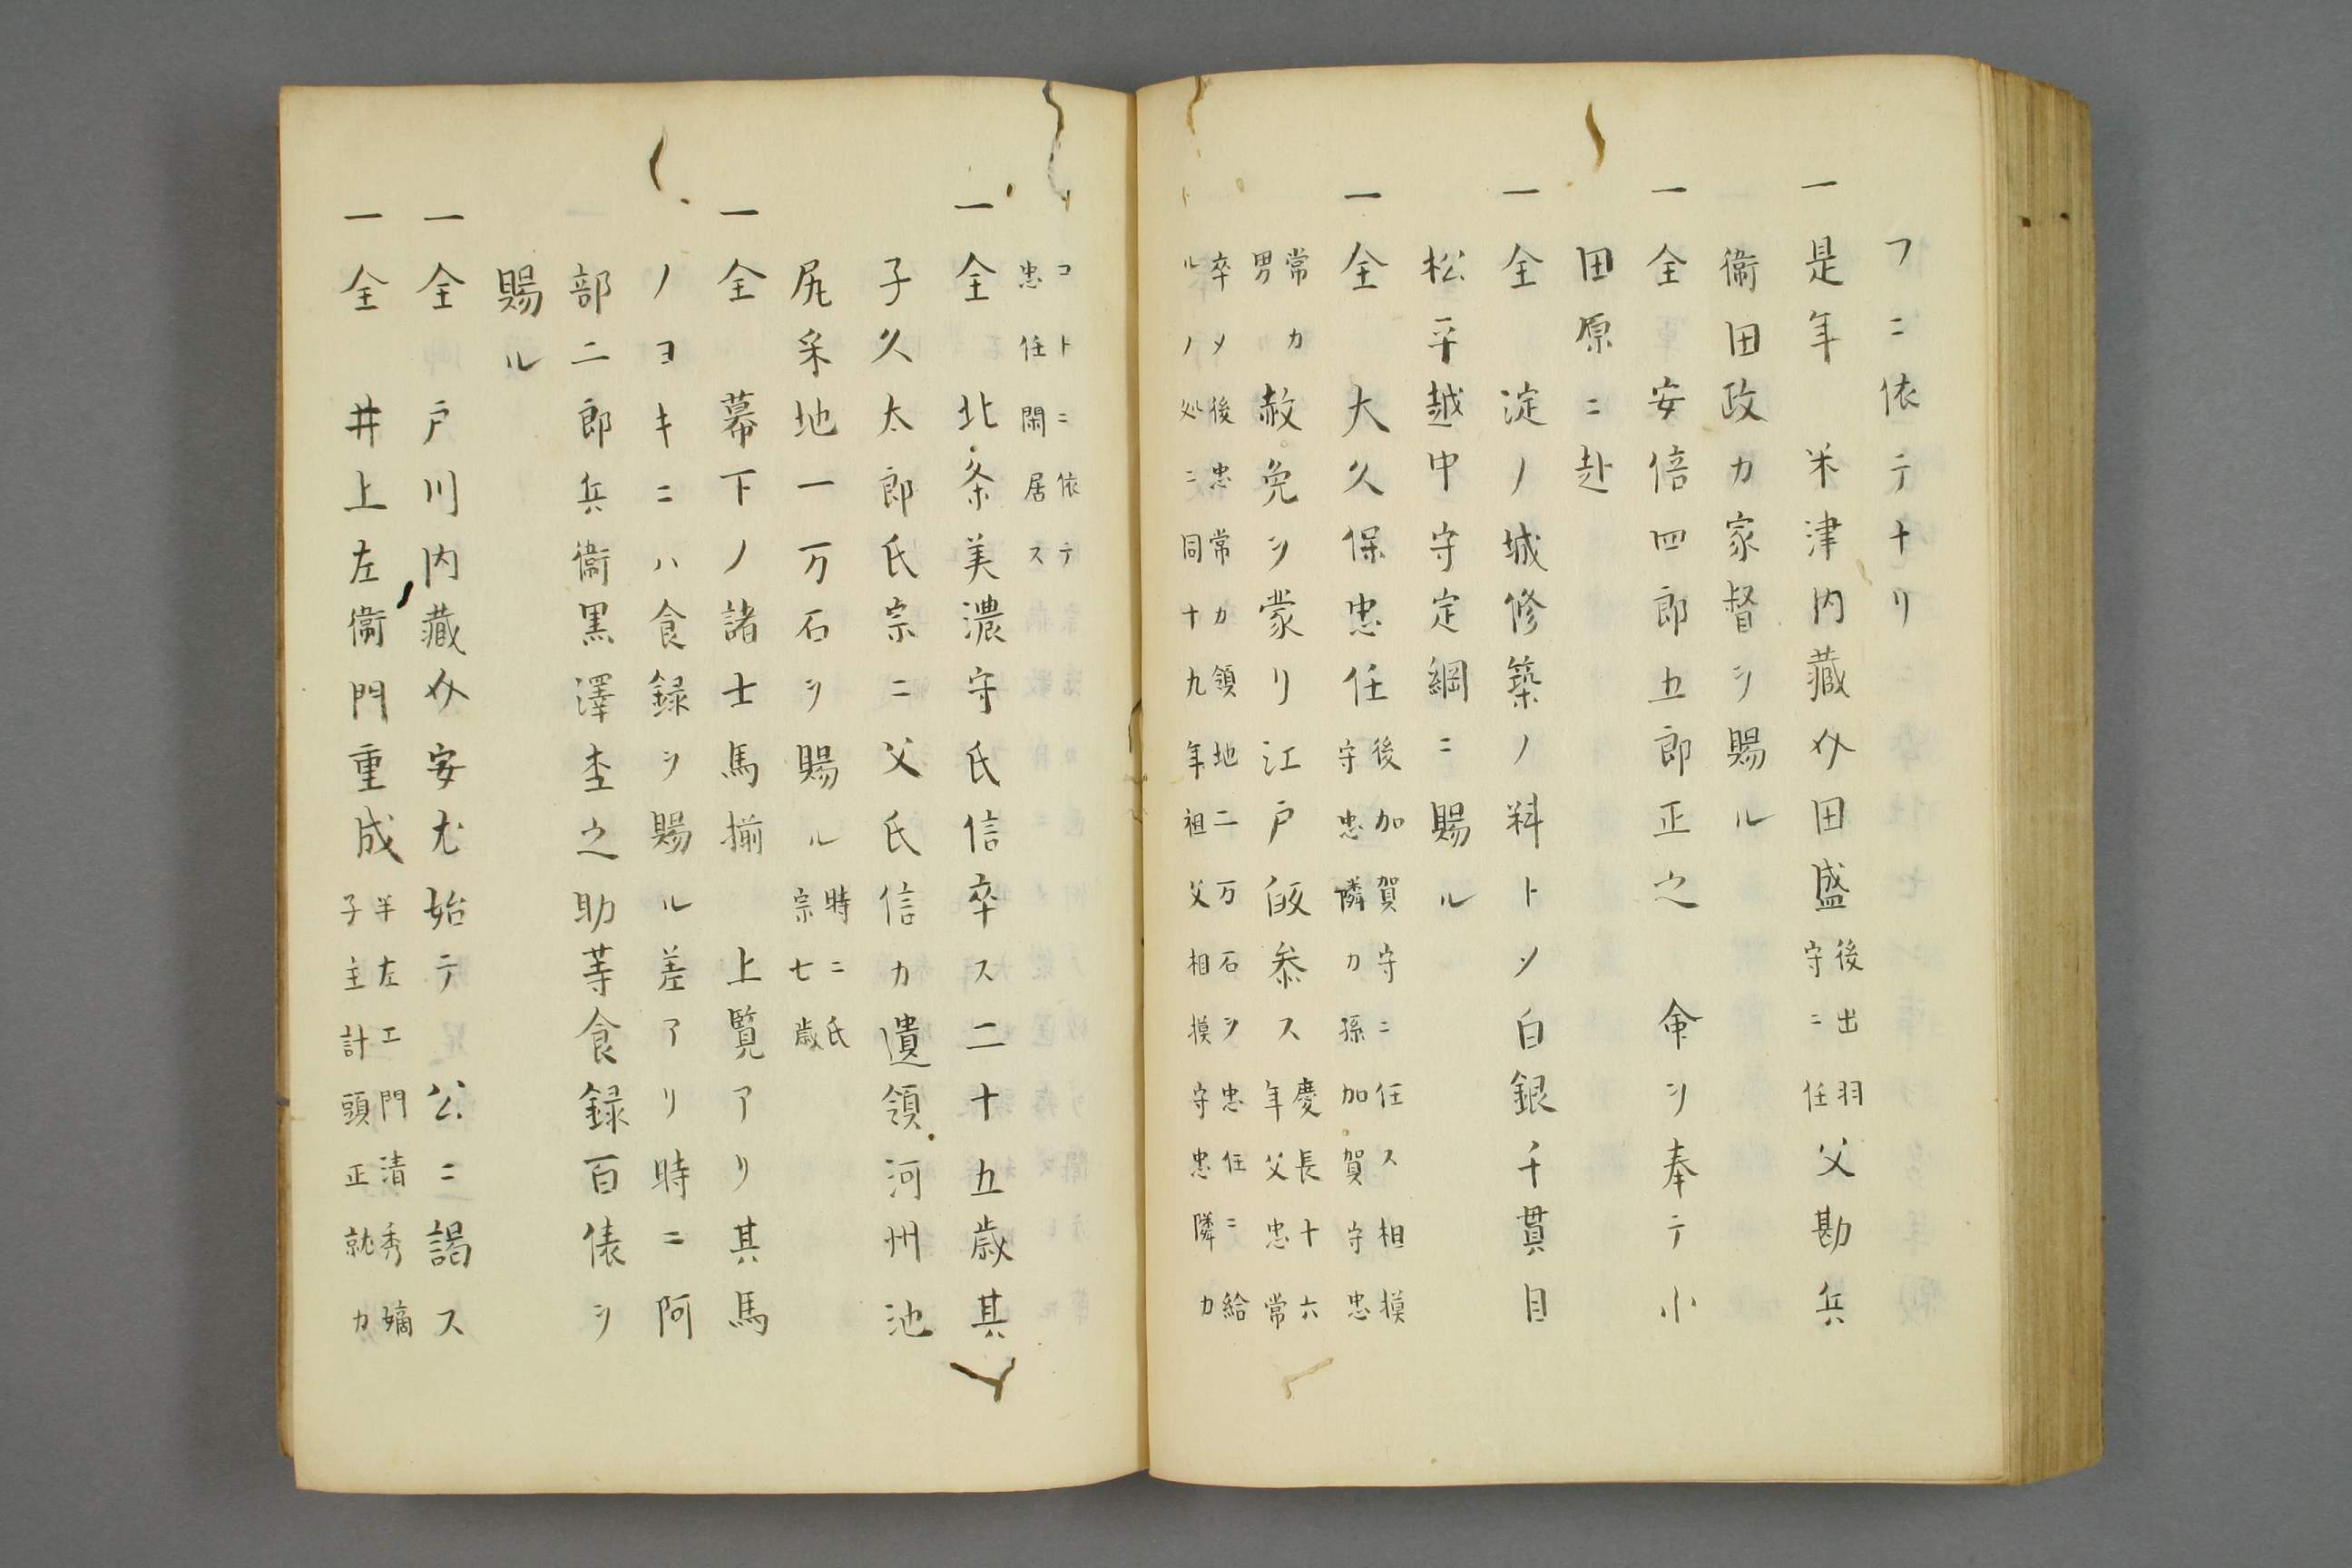 フニ依テナリ
一是年　米津内藏介田盛後出羽守ニ任父勘兵
衞田政カ家督ヲ賜ル
一仝　安倍四郎五郎正之　命ヲ奉テ小
田原ニ赴
一仝　淀ノ城修築ノ料トシ白銀千貫目
松平越中守定綱ニ賜ル
一仝　大久保忠任後加賀守ニ任ス相摸守忠隣カ孫加賀守忠
常カ男　赦免ヲ蒙リ江戸皈参ス慶長十六年父忠常
卒メ後忠常カ領地二万石ヲ忠任ニ給ルノ処ニ同十九年祖父相摸守忠隣カ
コトニ依テ忠任閑居ス
一仝　北条美濃守氏信卒ス二十五歳其
子久太郎氏宗ニ父氏信カ遺領河州池
尻采地一万石ヲ賜ル時ニ氏宗七歳
一仝　幕下ノ諸士馬揃　上覧アリ其馬
ノヨキニハ食録ヲ賜ル差アリ時ニ阿
部二郎兵衞黒澤杢之助䓁食録百俵ヲ
賜ル
一仝　戸川内藏介安尤始テ　公ニ謁ス
一仝　井上左衞門重成半左エ門清秀嫡子主計頭正就カ